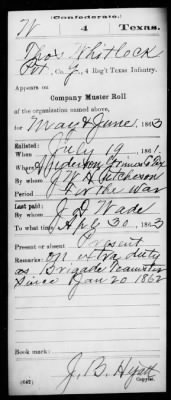 (Confederate.)
W 4 Texas.
Thos Whitlock
Pvt, Co. G, 4 Reg't Texas Infantry.
Appears on
Company Muster Roll
of the organization named above,
for May & June, 1863
Enlisted:
When July 19, 1861.
Where Anderson Grimes Co Tex
By whom J. W. Hutcherson
Period For the war
Last paid:
By whom J. D. Wade
To what time Apl 30, 1863
Present or absent Present
Remarks: On extra duty
as Brigade Teamster
since Jan 20 1862
Book mark:
J. B. Hyatt
(642) Copyist.